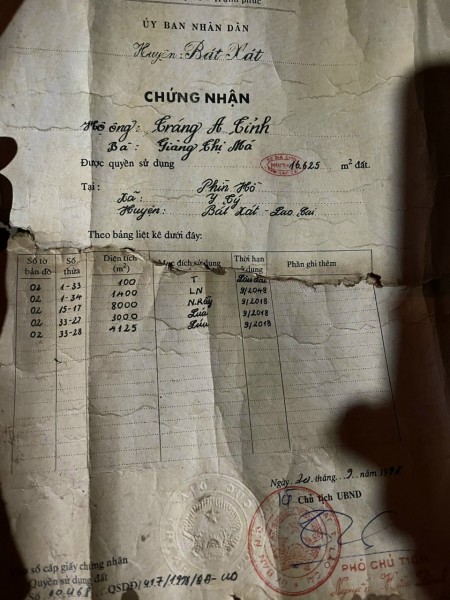 ỦY BAN NHÂN DÂN
Huyện: Bát Xát
CHỨNG NHẬN
Hộ ông: Tráng A Tỉnh
Bà: Giàng Thị Má
Được quyền sử dụng 16.625 m² đất.
Tại: Phìn Hồ
Xã: Y Tý
Huyện: Bát Xát - Lao Cai
Theo bảng liệt kê dưới đây:
Số tờ bản đồ Số thửa Diện tích (m²) Mục đích sử dụng Thời hạn sử dụng Phần ghi thêm
02 1-33 100 T Lâu dài
02 1-34 1400 LN 9/2048
02 15-17 8000 N.Rẫy 9/2018
02 33-27 3000 Lúa 9/2018
02 33-28 4125 Lúa 9/2018
Ngày 20 tháng 9 năm 1998
Chủ tịch UBND
PHÓ CHỦ TỊCH
số cấp giấy chứng nhận
Quyền sử dụng đất
QSDĐ/417/1998/QĐ-UB